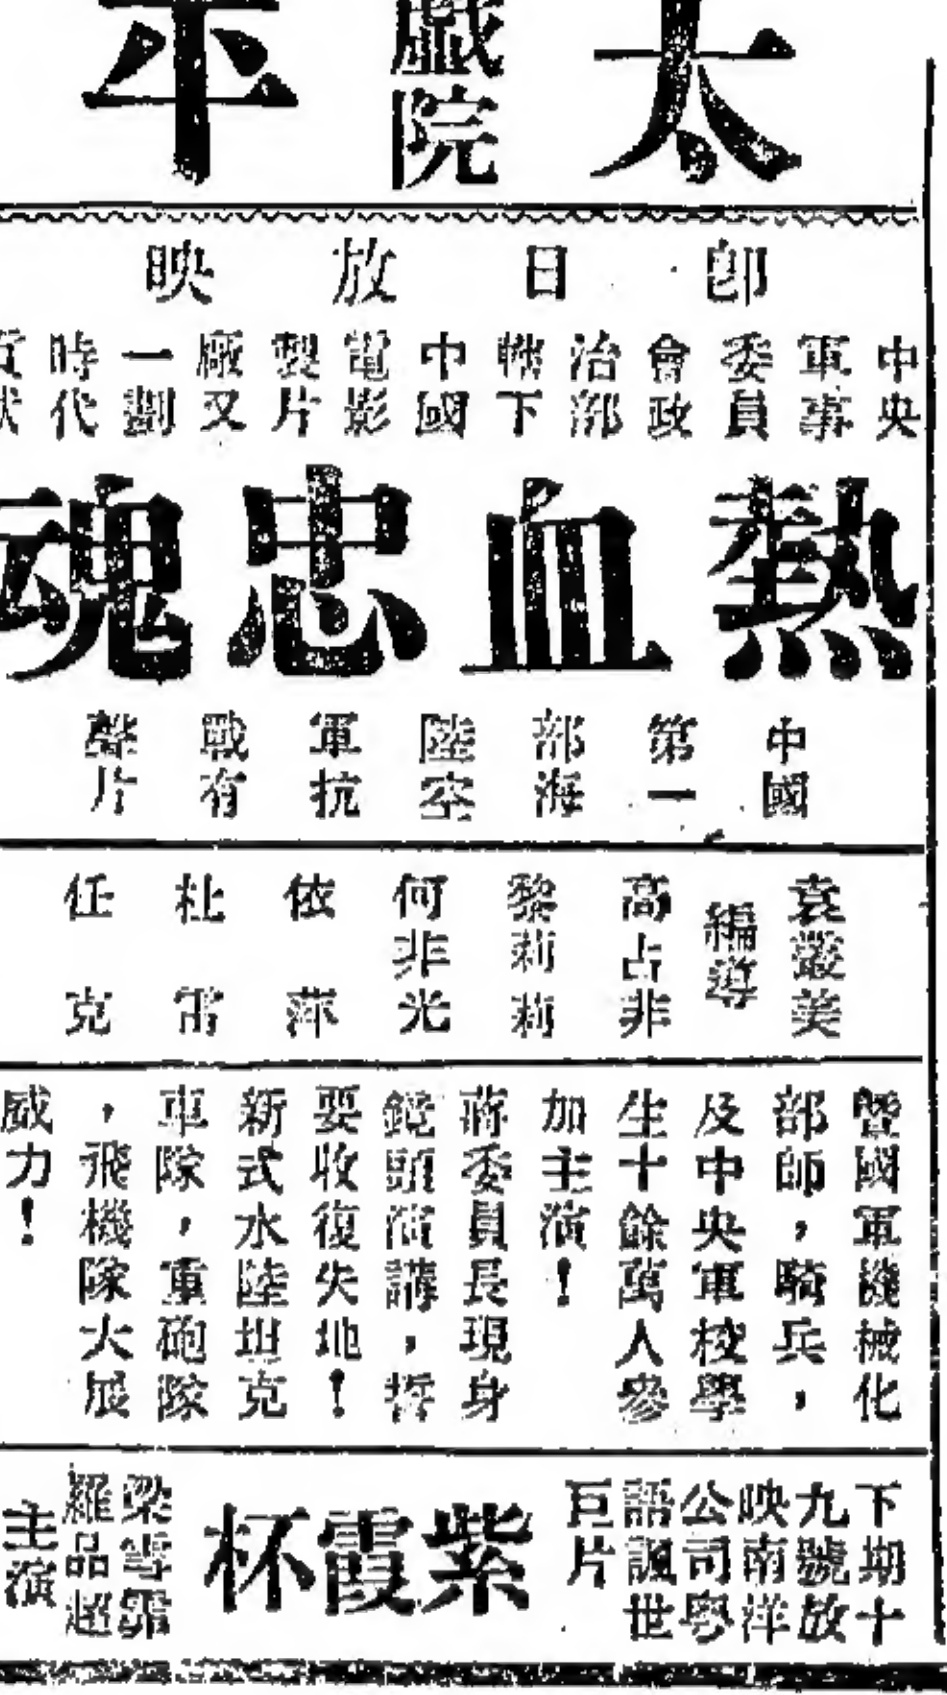 太平
戲院
卽日放映
中央
軍事
委員
會政
治部
轄下
中國
電影
製片
廠又
一劃
時代
熱血忠魂
中國
第一
部海
陸空
軍抗
戰有
聲片
袁叢美
編導
高占非
黎莉莉
何非光
依萍
杜雷
任克
暨國軍機械化
部師,騎兵,
及中央軍校學
生十餘萬人參
加主演!
蔣委員長現身
鏡頭演講,誓
要收復失地!
新式水陸坦克
車隊,重砲隊
,飛機隊大展
威力!
下期十
九號放
映南洋
公司粵
語諷世
巨片
紫霞杯
梁雪霏
羅品超
主演